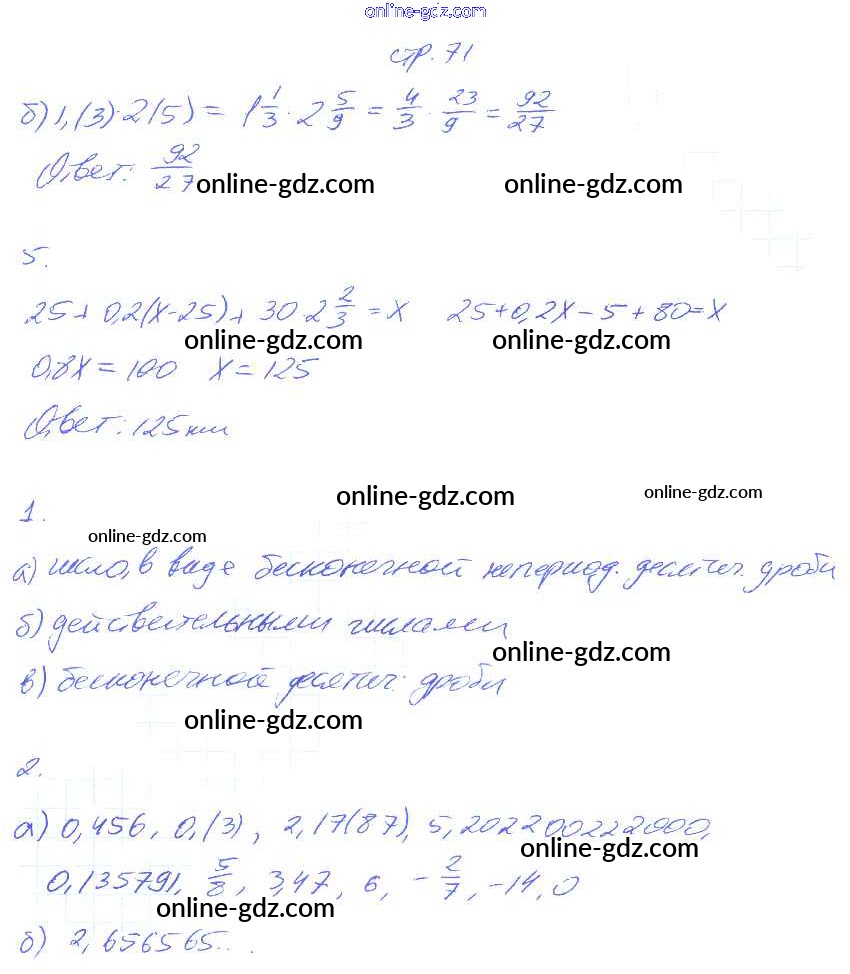 online-gdz.com
стр. 71
б) 1,(3)·2(5) = 1 1/3 · 2 5/9 = 4/3 · 23/9 = 92/27
Ответ: 92/27
online-gdz.com online-gdz.com
5.
25+0,2(x-25)+ 30·2 2/3 = x 25+0,2x-5+80=x
online-gdz.com online-gdz.com
0,8x = 100 x = 125
Ответ: 125км
online-gdz.com online-gdz.com
1.
online-gdz.com
а) число, в виде бесконечной непериод. десятич. дроби
б) действительными числами
online-gdz.com
в) бесконечной десятич. дроби
online-gdz.com
2.
а) 0,456, 0,(3), 2,17(87), 5,202200222000,
online-gdz.com
0,135791, 5/8, 3,47, 6, -2/7, -14, 0
online-gdz.com
б) 2,656565...